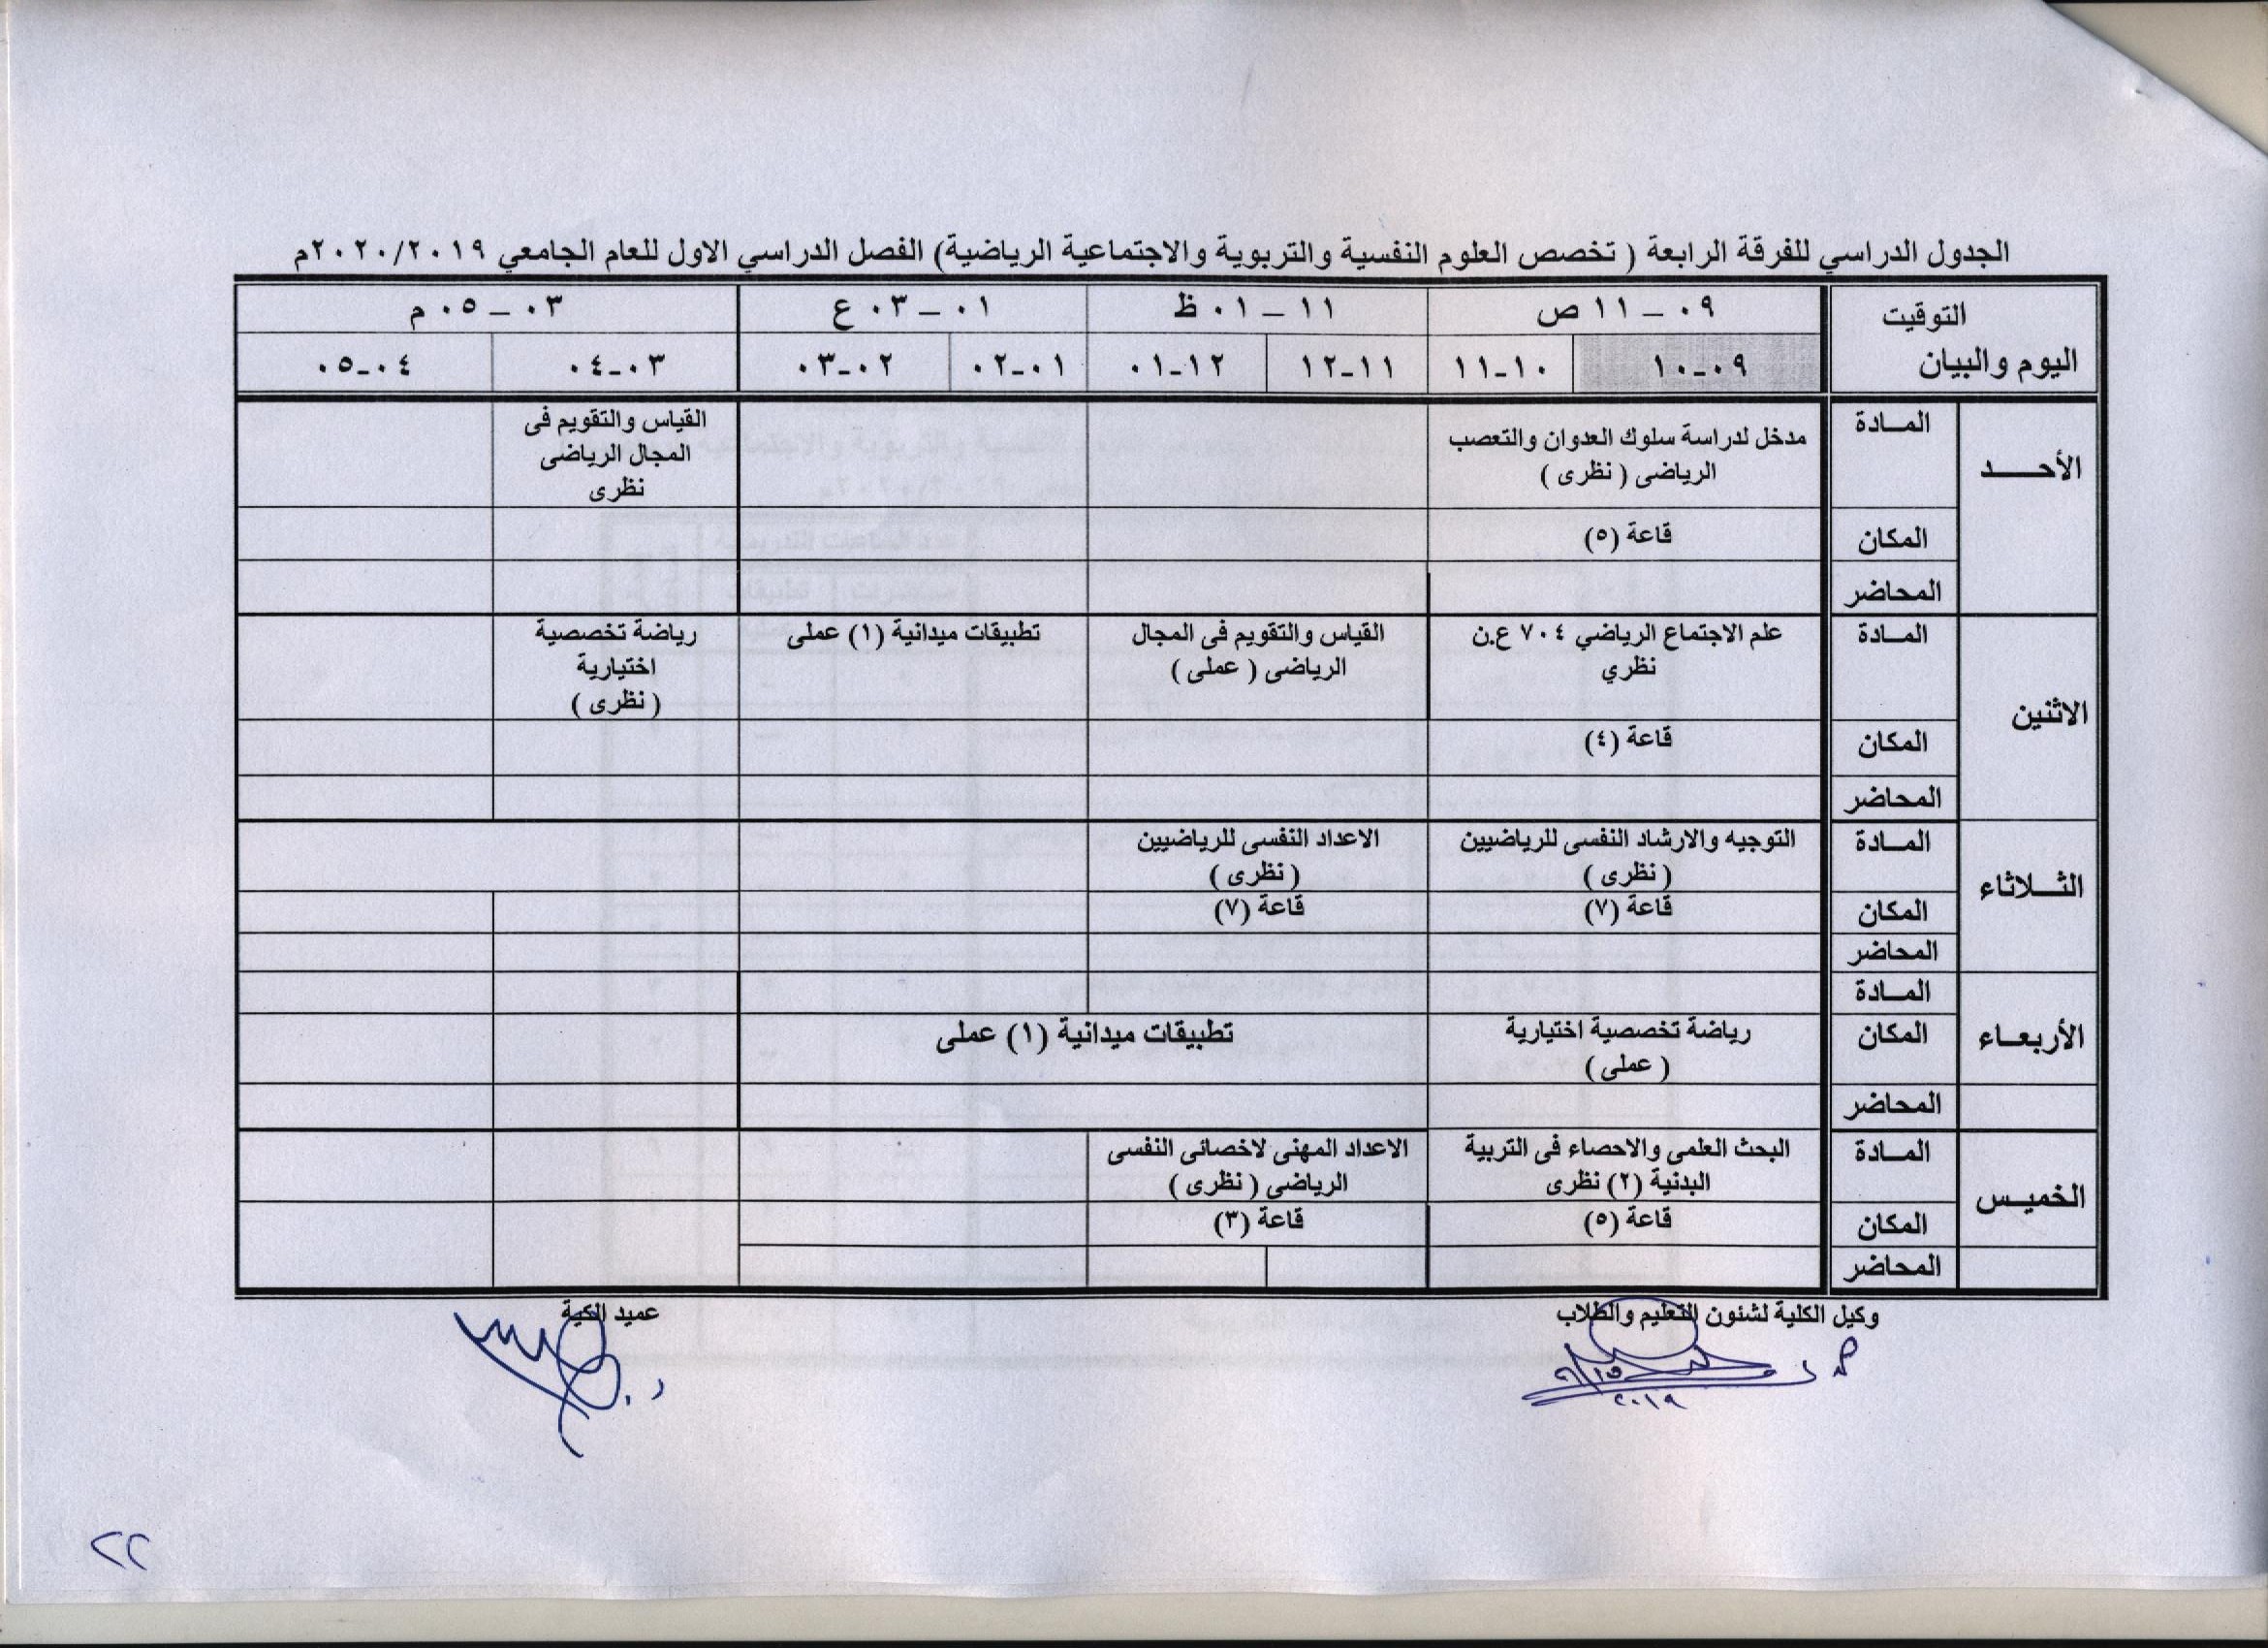 الجدول الدراسي للفرقة الرابعة ( تخصص العلوم النفسية والتربوية والاجتماعية الرياضية) الفصل الدراسي الاول للعام الجامعي ٢٠٢٠/٢٠١٩م
التوقيت
اليوم والبيان
٠٩ – ١١ ص
١١ – ٠١ ظ
٠١ – ٠٣ ع
٠٣ – ٠٥ م
٠٩-١٠
١٠-١١
١١-١٢
١٢-٠١
٠١-٠٢
٠٢-٠٣
٠٣-٠٤
٠٤-٠٥
الأحـــد
المــادة
مدخل لدراسة سلوك العدوان والتعصب
الرياضى ( نظرى )
القياس والتقويم فى
المجال الرياضى
نظرى
المكان
قاعة (٥)
المحاضر
الاثنين
المــادة
علم الاجتماع الرياضي ٧٠٤ ع.ن
نظري
القياس والتقويم فى المجال
الرياضى ( عملى )
تطبيقات ميدانية (١) عملى
رياضة تخصصية
اختيارية
( نظرى )
المكان
قاعة (٤)
المحاضر
الثــلاثاء
المــادة
التوجيه والارشاد النفسى للرياضيين
( نظرى )
الاعداد النفسى للرياضيين
( نظرى )
المكان
قاعة (٧)
قاعة (٧)
المحاضر
الأربعـاء
المــادة
المكان
رياضة تخصصية اختيارية
( عملى )
تطبيقات ميدانية (١) عملى
المحاضر
الخميـس
المــادة
البحث العلمى والاحصاء فى التربية
البدنية (٢) نظرى
الاعداد المهنى لاخصائى النفسى
الرياضى ( نظرى )
المكان
قاعة (٥)
قاعة (٣)
المحاضر
وكيل الكلية لشئون التعليم والطلاب
عميد الكية
٢٠١٩
٢٢